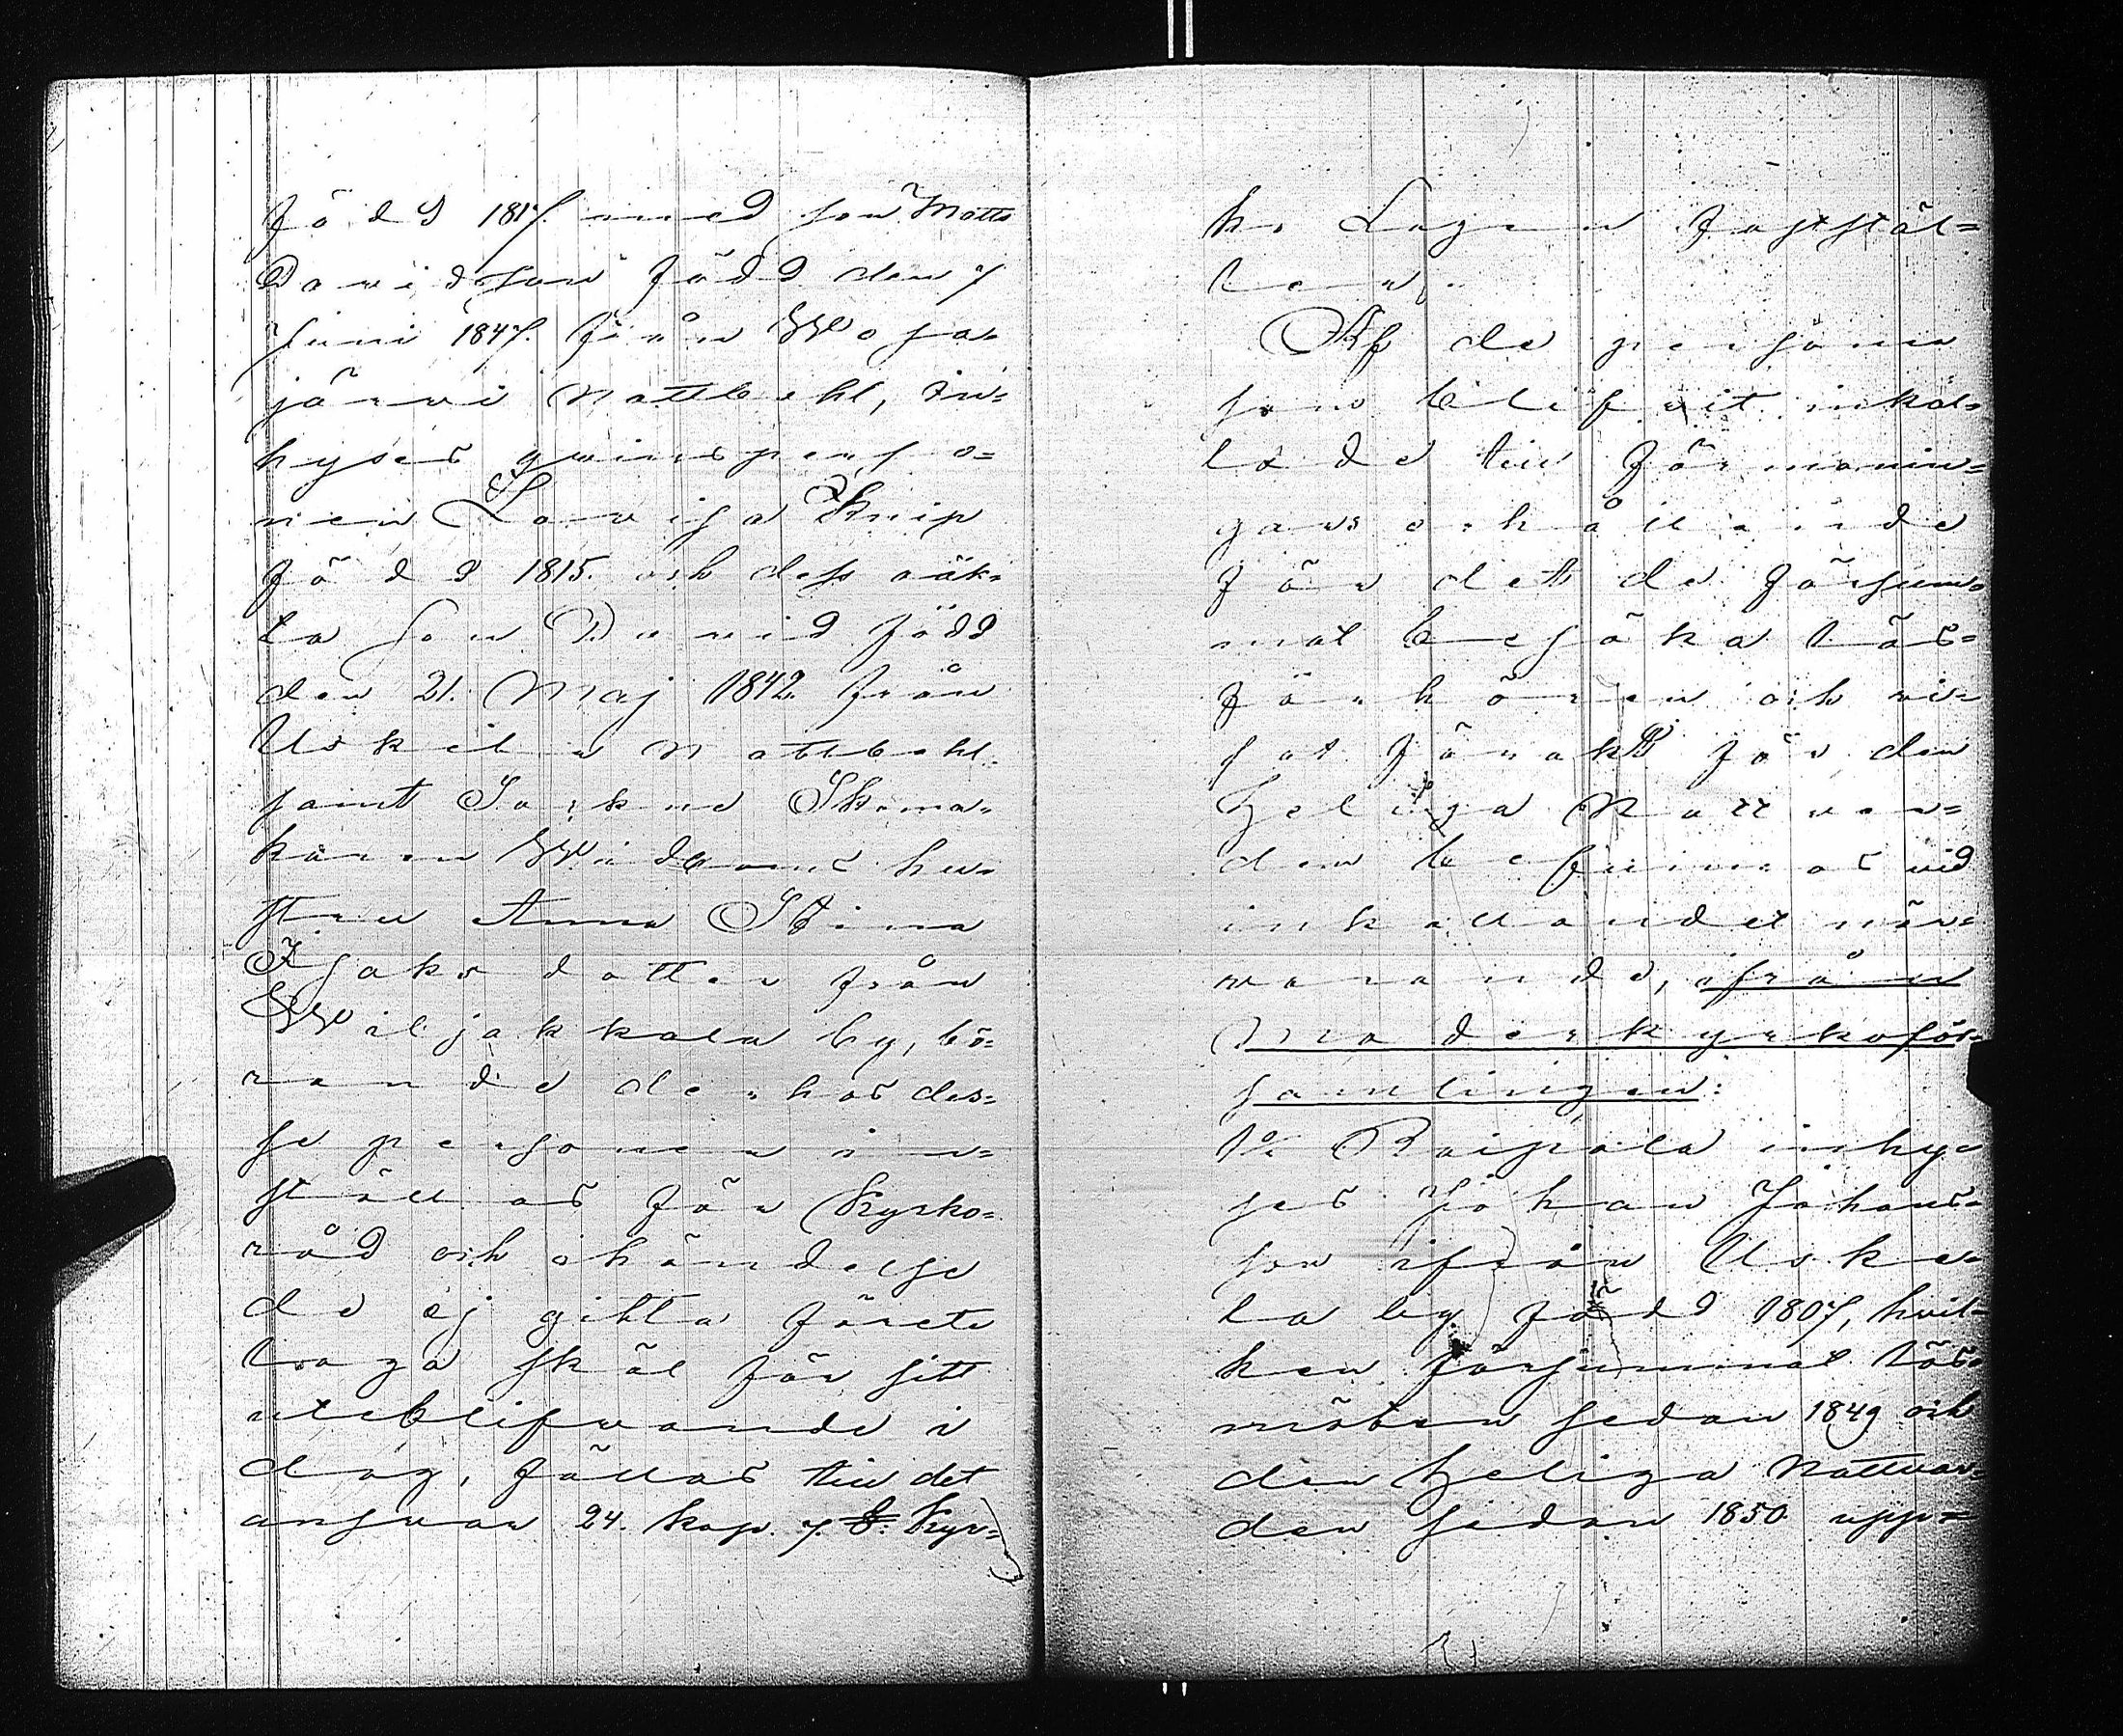 född 1817. med son Matts
Davidson född den 7
Juni 1847. från Wosa-
järvi Nattlachl, in-
hyses qvinsperso=
nen Lovisa Knip
född 1815. och dess oäk-
ta son David född
den 21. Maj 1842. från
Uskila Nattlachl.
samt Sockne Skoma-
karen Widboms hu-
stru Anna Stina
Isaksdotter från
Wiljakkala by, bö=
rande derhos des=
se personer in=
ställas för Kyrko=
råd och ihändelse
de ej gitta förete
laga skäl för sitt
uteblifvande i
dag, fällas till det
answar 24. kap. 7. §. Kyr=
ko Lagen faststäl=
ler.
Af de personer
som blifvit inkal=
lade till förmanin=
gars erhållande
för det de försum-
mat besöka Läs=
förhören och vi=
sat förakt för den
Heliga Nattvar=
den befinnas vid
inkallandet när=
varande, ifrån
Moderkyrkoför=
samlingen:
1o/ Raipala inhy=
ses Johan Johans=
son ifrån Uske=
la by född 1807, hvil=
ken försummat Läs=
möten sedan 1849 och
den Heliga Nattvar=
den sedan 1850. upp=